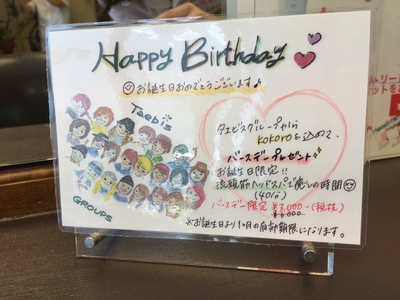 Happy Birthday
お誕生日おめでとうございます♪
Taebis
GROUPS
タエビスグループから
kokoroを込めて、
バースデープレゼント
お誕生日限定!!
流頭筋ヘッドスパで癒しの時間
(40分)
バースデー限定 ¥3,000-(税抜)
¥6,000
※お誕生日より1ヶ月の有効期限になります。